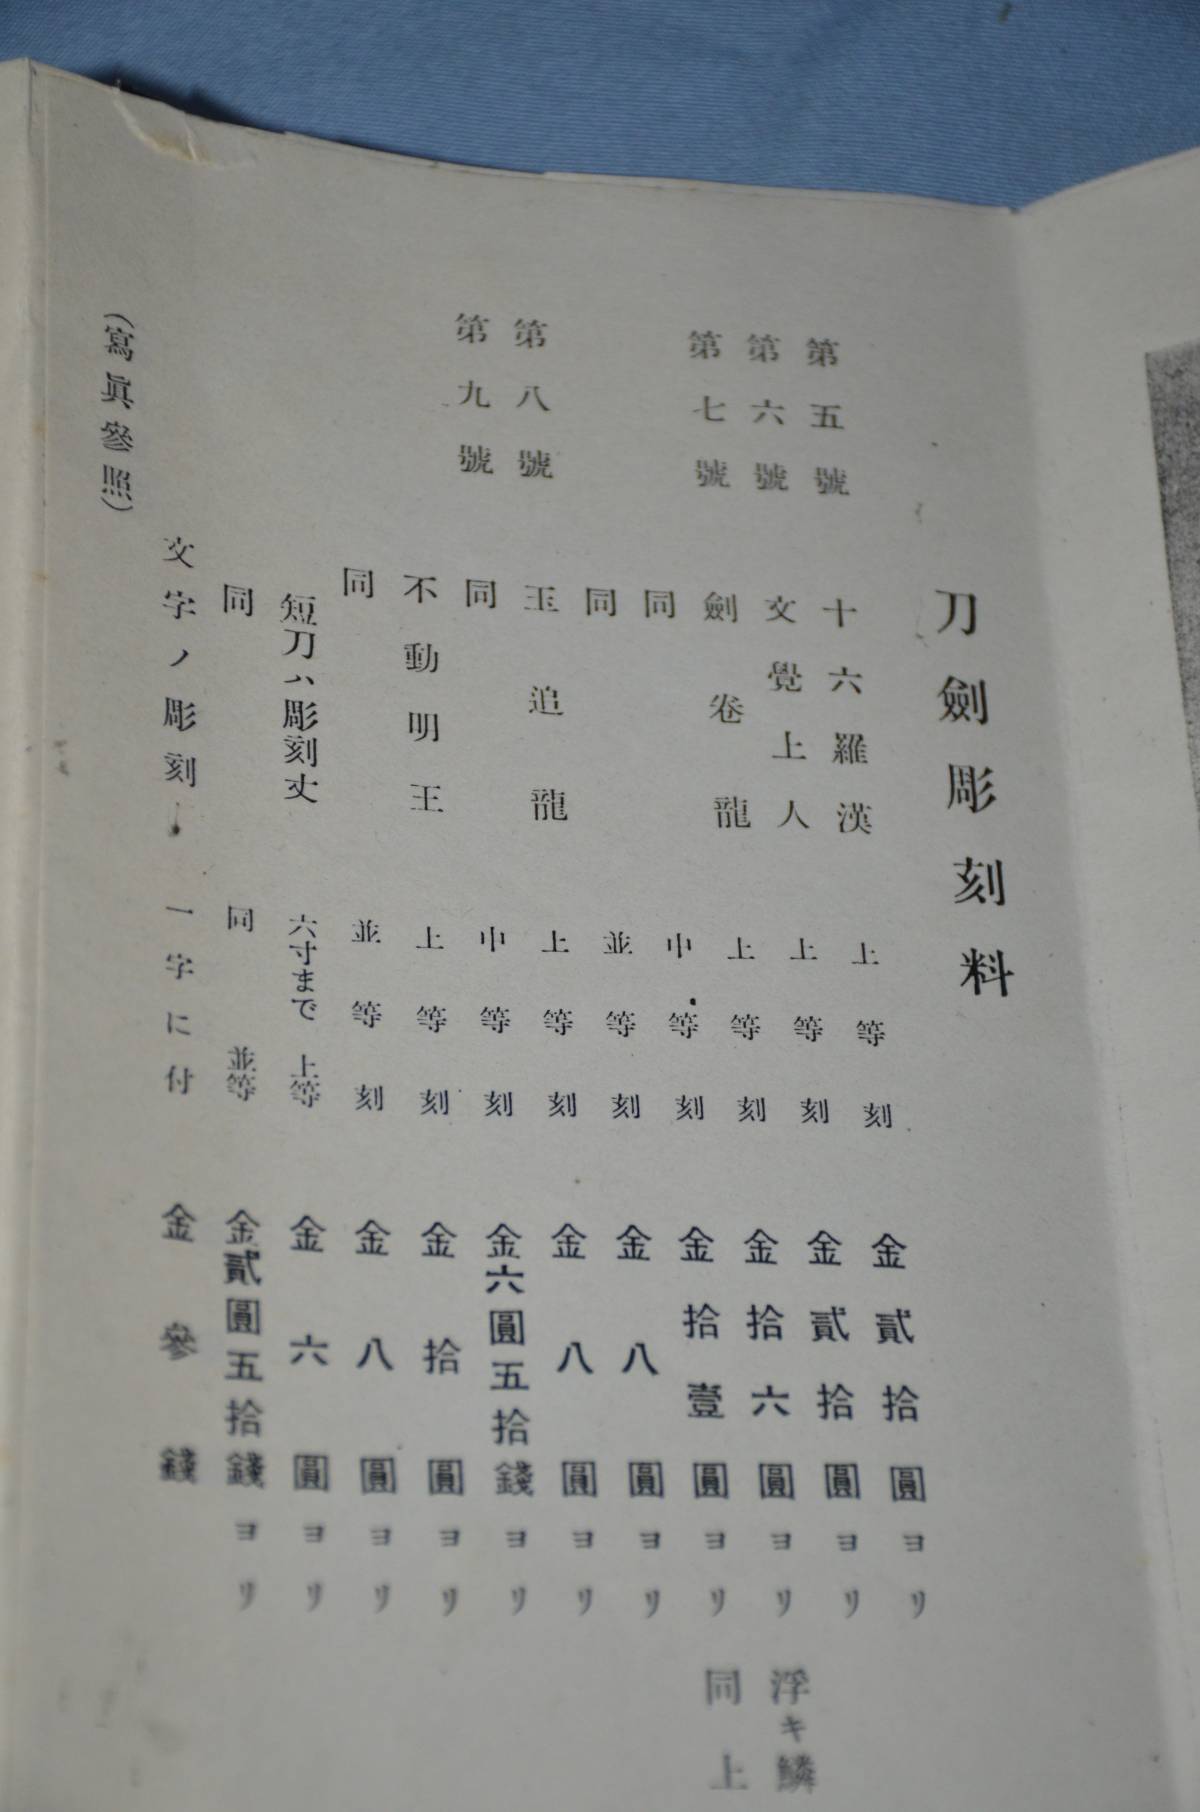 刀劍彫刻料
第五號 十六羅漢 上等刻 金貳拾圓ヨリ
第六號 文覺上人 上等刻 金貳拾圓ヨリ
第七號 劍卷龍 上等刻 金拾六圓ヨリ 浮キ鱗
同 中等刻 金拾壹圓ヨリ 同上
同 並等刻 金八圓ヨリ
第八號 玉追龍 上等刻 金八圓ヨリ
同 中等刻 金六圓五拾錢ヨリ
第九號 不動明王 上等刻 金拾圓ヨリ
同 並等刻 金八圓ヨリ
短刀ハ彫刻丈 六寸まで 上等 金六圓ヨリ
同 同 並等 金貳圓五拾錢ヨリ
文字ノ彫刻 一字に付 金參錢
(寫眞參照)